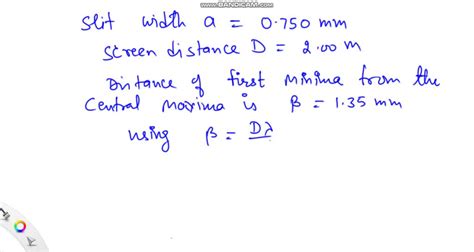 WWW.BANDICAM.COM
Slit width a = 0.750 mm
Screen distance D = 2.00 m
Distance of first minima from the
Central maxima is β = 1.35 mm
using β = Dλ/